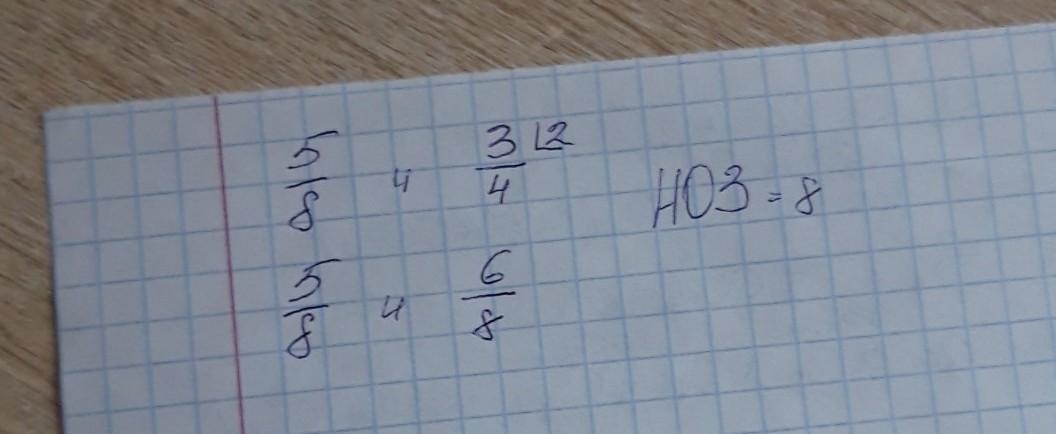 5/8 и 3/4 ⌊2 НОЗ = 8
5/8 и 6/8